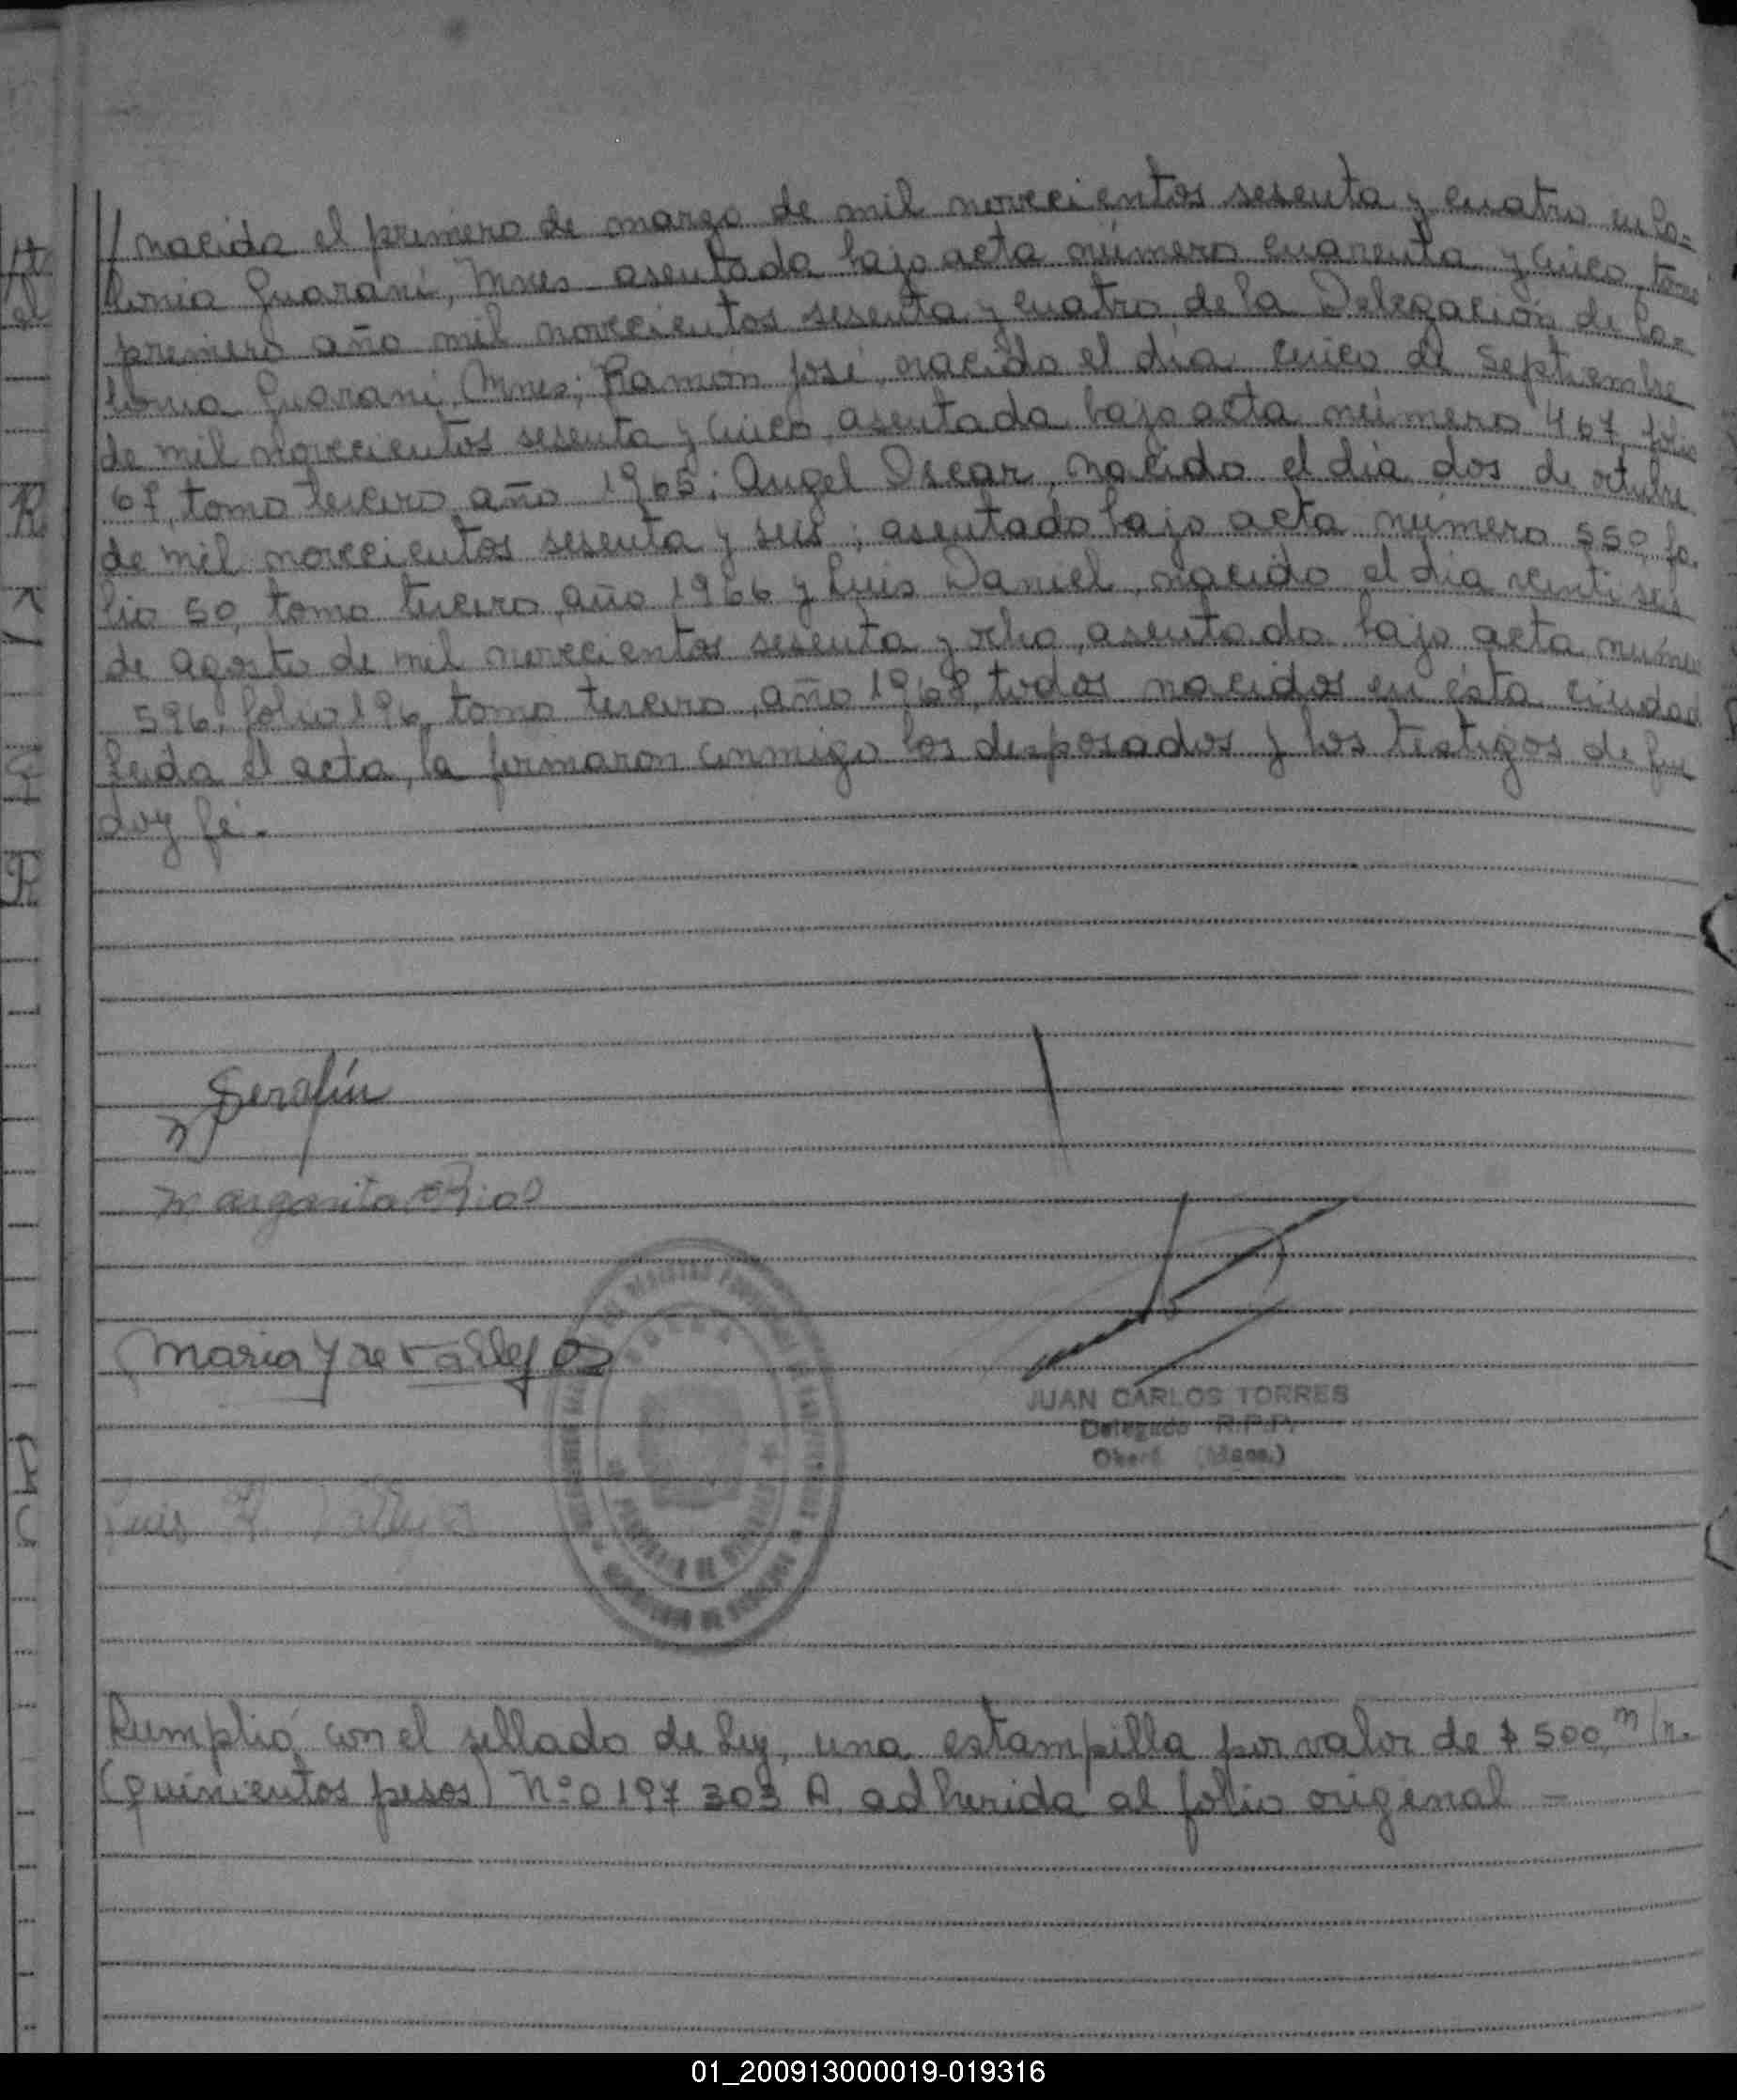 // nacida el primero de marzo de mil novecientos sesenta y cuatro en Co=
lonia Guaraní, Mnes asentada bajo acta número cuarenta y cinco, tomo
primero año mil novecientos sesenta y cuatro, de la Delegación de Co=
lonia Guaraní, Mnes; Ramón José, nacido el día cinco de septiembre
de mil novecientos sesenta y cinco, asentada bajo acta número 467, folio
67, tomo tercero, año 1965; Angel Oscar, nacido el día dos de octubre
de mil novecientos sesenta y seis; asentado bajo acta número 550, fo-
lio 50, tomo tercero, año 1966 y Luis Daniel, nacido el día veintiseis
de agosto de mil novecientos sesenta y ocho, asentado bajo acta número
596, folio 196, tomo tercero, año 1968, todos nacidos en ésta ciudad
Leida el acta, la firmaron conmigo los desposados y los testigos de que
doy fé.-
Serafín
Margarita Rios
Maria Y de Vallejos
JUAN CARLOS TORRES
Delegado R.P.P.
Oberá (Mnes.)
Luis Vallejos
PROVINCIA DE MISIONES
Cumplió con el sellado de Ley, una estampilla por valor de $ 500, m/n.
(quinientos pesos) Nº 0197303 A adherida al folio original =
01_200913000019-019316